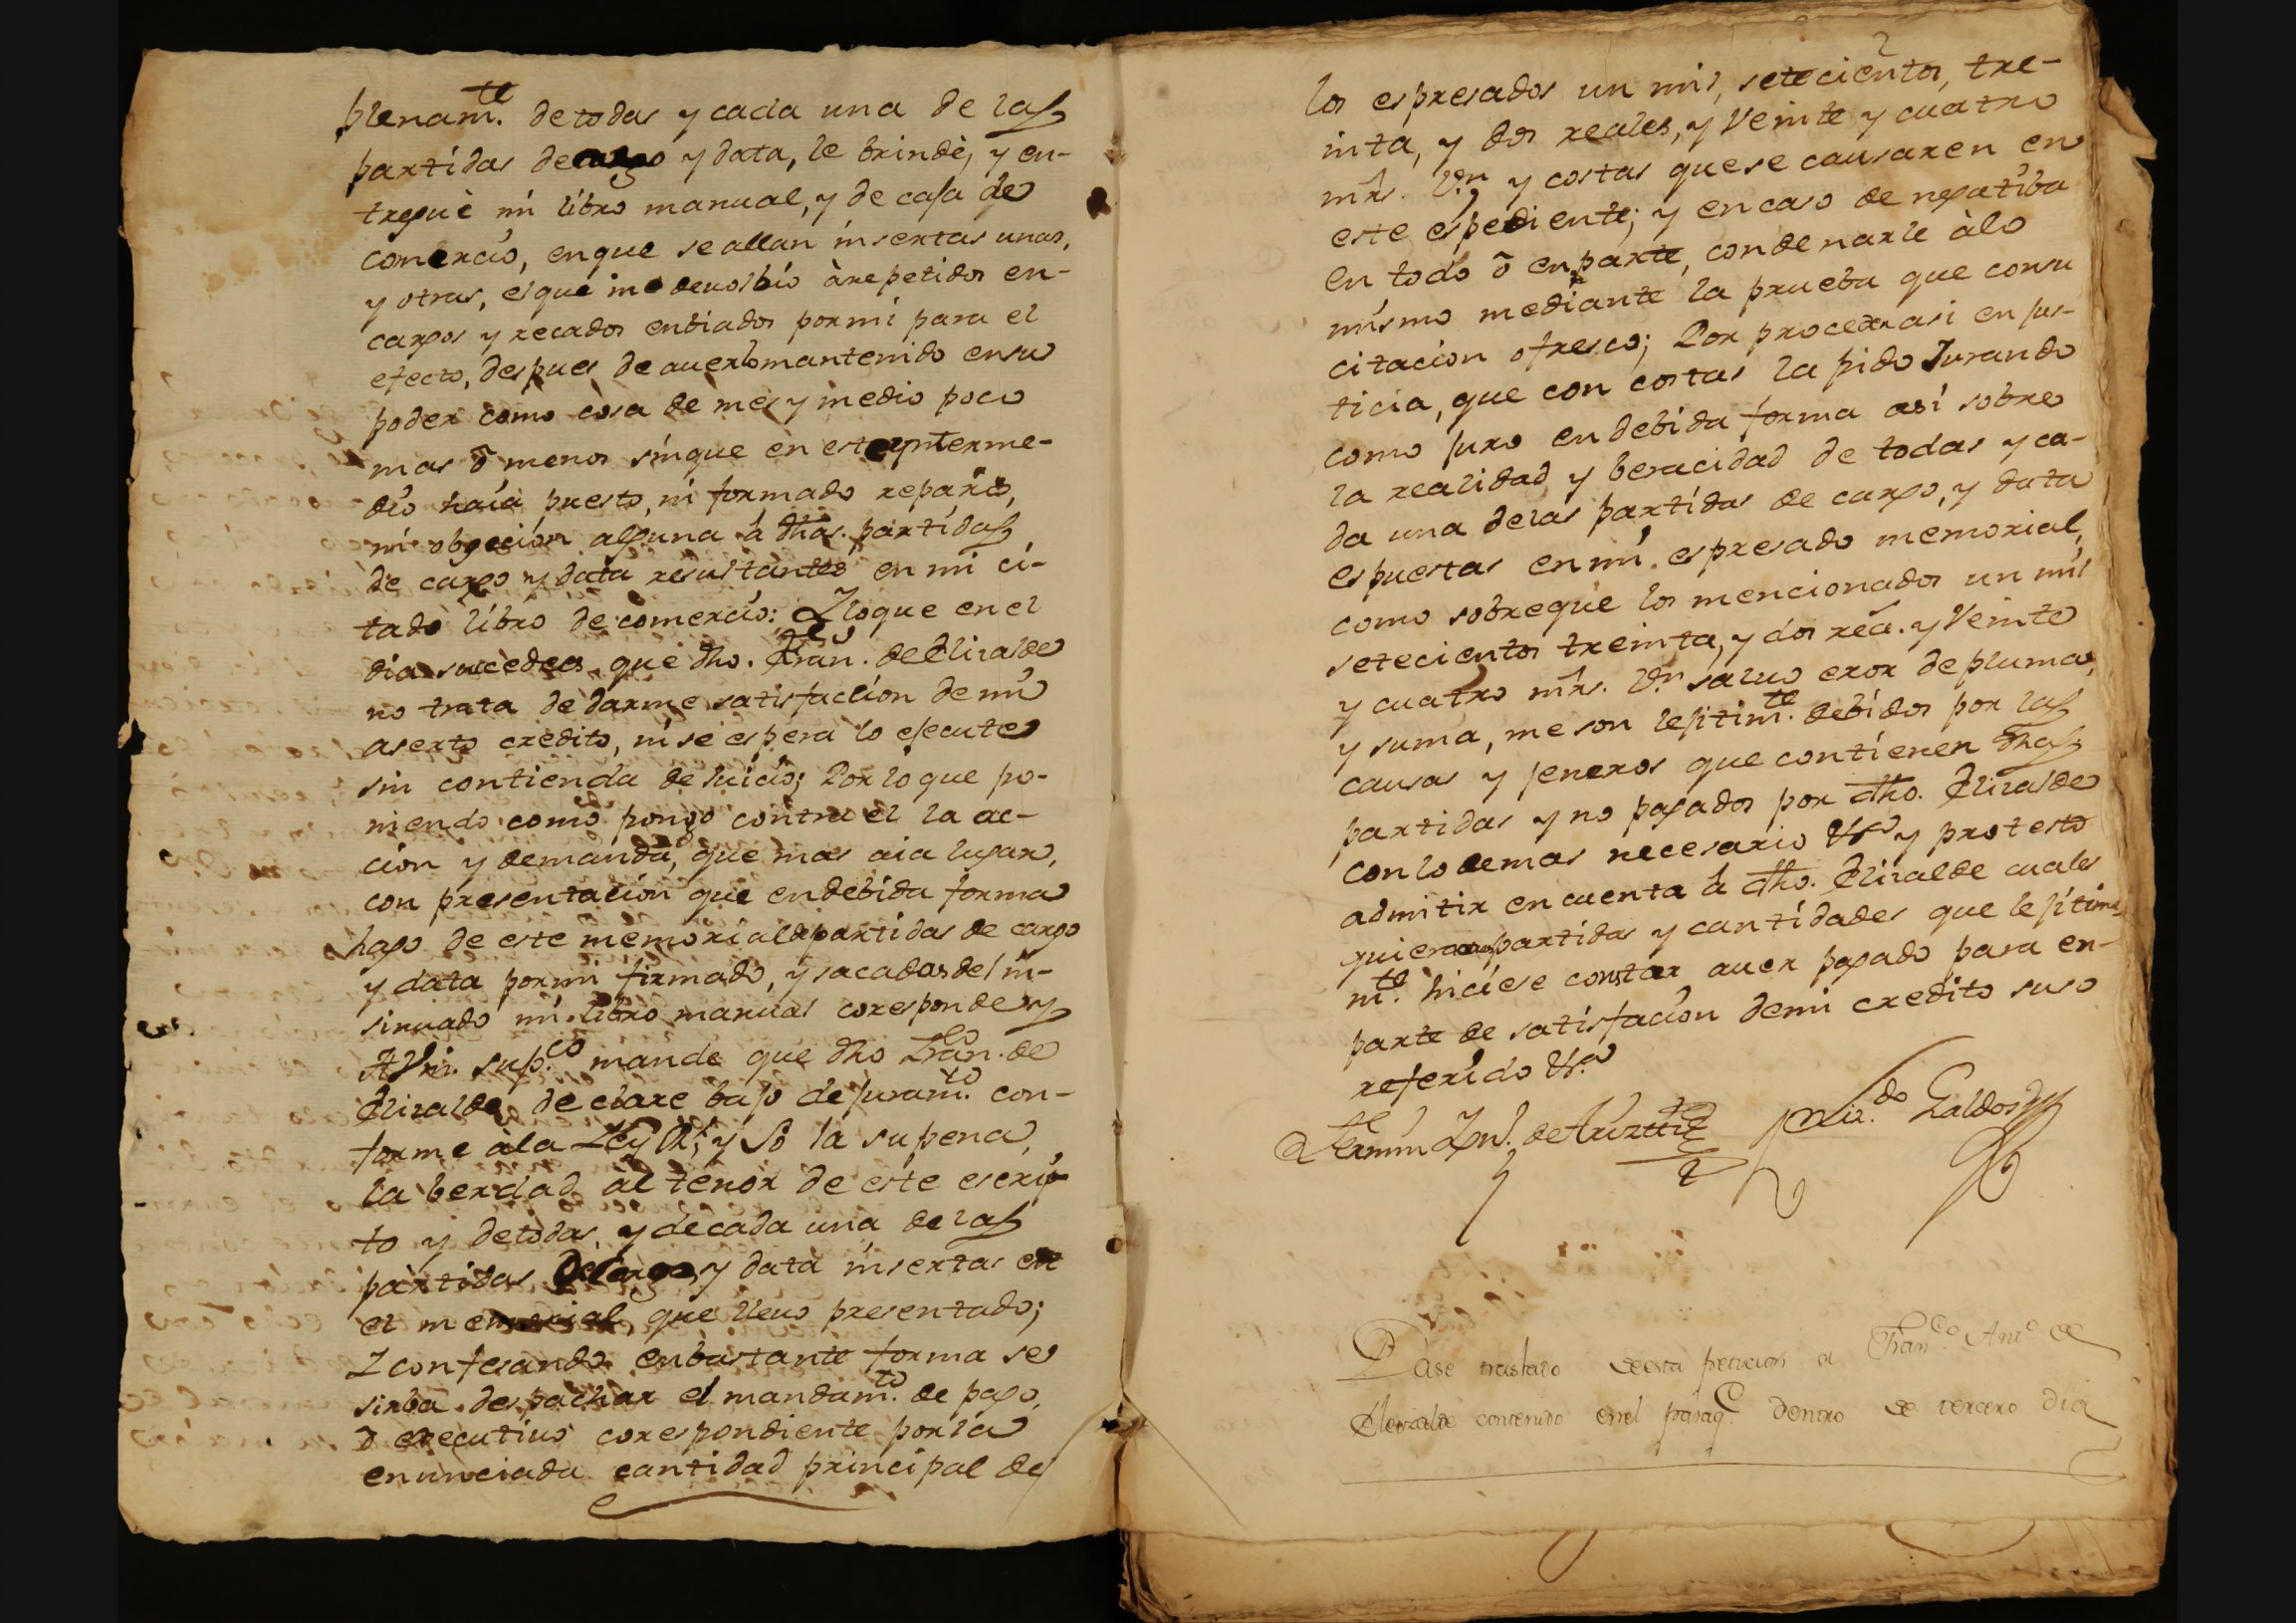 plenam.te de todas y cada una de las
partidas de cargo y data, le brindè, y en-
treguè mi libro manual, y de casa de
comercio, en que se allan insertas unas,
y otras, el que me devolbio à repetidos en-
cargos y recados enbiados por mi para el
efecto, despues de auerlo mantenido en su
poder como cosa de mes y medio poco
mas ô menos sin que en este ynterme-
dio haia puesto, ni formado reparo,
ni obgecion alguna â dhas. partidas
de cargo y data resultantes en mi ci-
tado libro de comercio: Y lo que en el
dia sucede es, que dho. Fran.co de Elizalde
no trata de darme satisfaccion de mi
aserto credito, ni se espera lo ejecute
sin contienda de Juicio; Por lo que po-
niendo como pongo contra el la ac-
cion y demanda, que mas aia lugar,
con presentacion que en debida forma
hago de este memorial de partidas de cargo
y data por mi firmado, y sacadas del in-
sinuado mi libro manual coresponde, y
A Vm. sup.co mande que dho Fran.co de
Elizalde declare bajo de juram.to con-
forme à la Ley Rl; y so la su pena,
la berdad al tenor de este escrip-
to y de todas, y de cada una de las
partidas de cargo, y data insertas en
el memorial, que lleuo presentado;
Y confesando en bastante forma se
sirba despachar el mandam.to de pago,
ô executivo corespondiente por la
enunciada cantidad principal de
2
los espresados un mil, setecientos, tre-
inta, y dos reales, y Veinte y cuatro
mrs. Vn. y costas que se causaren en
este espediente; y en caso de negatiba
en todo ô en parte, condenarle à lo
mismo mediante la prueba que con su
citacion ofresco; Por proceder asi en jus-
ticia, que con costas la pido Jurando
como juro en debida forma asi sobre
la realidad y beracidad de todas y ca-
da una de las partidas de cargo, y data
espuestas en mi espresado memorial,
como sobre que los mencionados un mil
setecientos treinta, y dos rea. y Veinte
y cuatro mrs. Vn. saluo eror de pluma,
y suma, me son lejitim.te debidos por las
causas y jeneros que contienen dhas
partidas y no pagados por dho. Elizalde
con lo demas necesario Vsa y protesto
admitir en cuenta â dho. Elizalde cuales
quiera partidas y cantidades que lejitima
m.te hiciese constar auer pagado para en-
parte de satisfacion de mi credito suso
referido Vsa
Fermin de
Galdos
Dase traslado de esta peticion a Fran.co Ant.o de
Elizalde contenido en el dentro de tercero dia